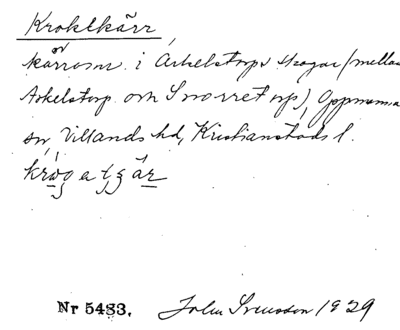 Kroklkärr,
kärroms. i Arkelstorps skogar (mellan
Arkelstorp och Snorretorp), Oppmanna
sn, Villands hd, Kristianstads l.
Nr 5483. John Svensson 1929